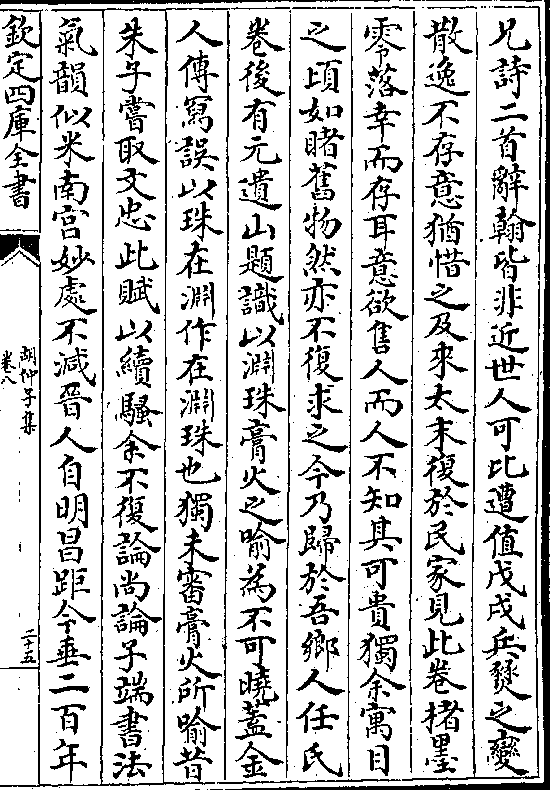 兄詩二首辭翰皆非近世人可比遭值戊戌兵燹之變
散逸不存意猶惜之及來太末復於民家見此卷楮墨
零落幸而存耳意欲售人而人不知其可貴獨余寓目
之頃如睹舊物然亦不復求之今乃歸於吾鄉人任氏
卷後有元遺山題識以淵珠膏火之喻為不可曉蓋金
人傳寫誤以珠在淵作在淵珠也獨未審膏火所喻昔
朱子嘗取文忠此賦以續騷余不復論尚論子端書法
氣韻似米南宫妙處不減晉人自明昌距今垂二百年
欽定四庫全書
胡仲子集
卷八
二十五